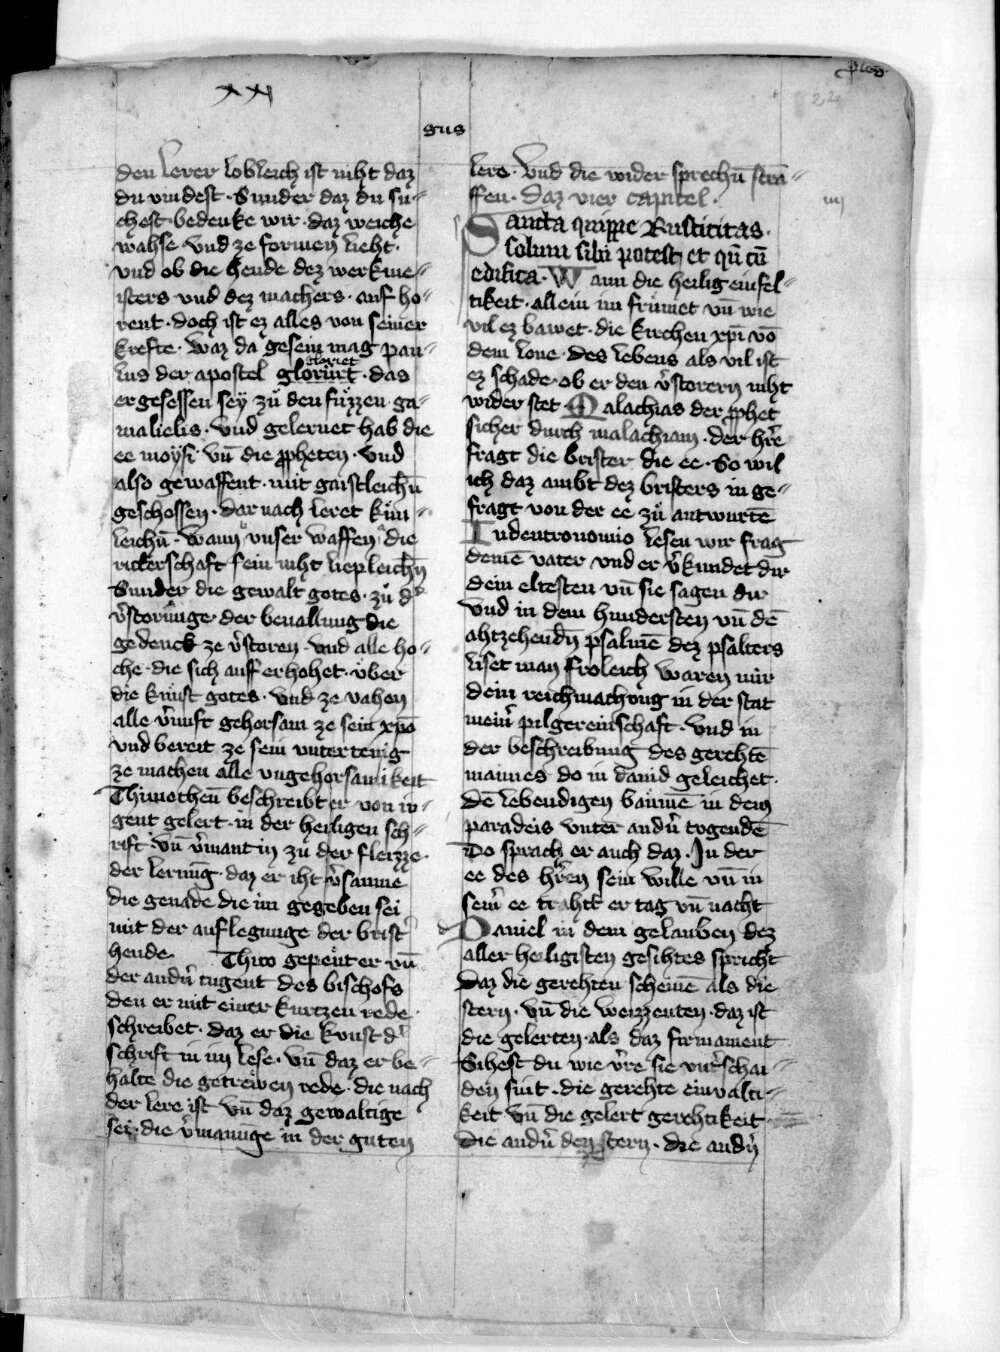 xxi
plog
22
gus
den lerer lobleich ist niht daz
du vindest · Sunder daz du su-
chest · bedenke wir · daz weiche
wahse · vnd ze formen lieht ·
vnd ob die hende dez werkme-
isters vnd dez machers · auf ho-
rent · doch ist ez alles von seiner
krefte · waz da gesein mag pau-
lus der apostel gloriirt · das
er gesessen sey zů den fůzzen · ga-
malielis · vnd gelernet hab die
ee moysi vn̄ die ꝓpheten · vnd
also gewaffent · mit gaistleichn̄
geschossen · dar nach leret kün-
leichn̄ · wann vnser waffen die
ritterschaft sein niht liepleichn̄
Sunder die gewalt gotes · zů d
v̄storůnge der beuallung die
gedenck ze v̄storen · vnd alle ho-
che · die sich auf erhohet · vber
die kunst gotes · vnd ze vahen
alle v̄nuft gehorsam ze sein xpō
vnd bereit ze sein vntertenig
ze machen alle vngehorsamikeit
Thimotheū beschreibt er von iu-
gent gelert · in der heiligen sch-
rift · vn̄ v̄mant in zu der fleizze ·
der lernūg · daz er iht v̄saume
die genade die im gegeben sei
mit der auflegunge der brist
hende Thito gepeut er vn̄
der andn̄ tugent des bischofs
den er mit einer kurtzen rede
schreibet · daz er die kunst d
schrift in im lese · vn̄ daz er be-
halte die getrewen rede · die nach
der lere ist vn̄ daz gewaltige
sei · die v̄manūge in der guten
lere · vnd die wider sprechn̄ stra-
ffen · daz vier capitel ·
iiij
Sancta quippe Rusticitas ·
solum sibi potest et qn̄tū
edifica · Wann die heilig einfel-
tikeit · allein im frumet vn̄ wie
vil ez bawet · die kirchen xp̄i vō
dem lone · des lebens als vil ist
ez schade · ob er den v̄storern niht
wider stet Malachias der ꝓphet
sicher durch malachiam · der hr̄e
fragt die brister die ee · So wil
ich daz ambt dez bristers in ge-
fragt von der ee zů antwurtē
Indeutronomio lesen wir frag
deinē vater vnd er v̄kundet dir
dein eltesten vn̄ sie sagen dir
vnd in dem hundersten vn̄ dē
ahtzehendn̄ psalmē dez psalters
liset man froleich waren mir
dein reichmachong in der stat
mein̄ pilgereinschaft · vnd in
der beschreibung des gerehtē
mannes do in dauid geleichet ·
dē lebendigen baumē in dem
paradeis vnter andn̄ tvgendē
Do sprach er auch daz · In der
ee des hr̄en sein wille vn̄ in
sein̄ ee trahtet er tag vn̄ nacht
Daniel in dem gelauben dez
aller heiligisten gesihtes spricht
daz die gerehten scheinē als die
stern · vn̄ die weizzenten · daz ist
die gelerten · als daz firmament
Sihest du wie v̄re sie vnt̄schai-
den sint · die gerehte einvalti-
keit vn̄ die gelert gerehtikeit
die andn̄ den stern · die andn̄